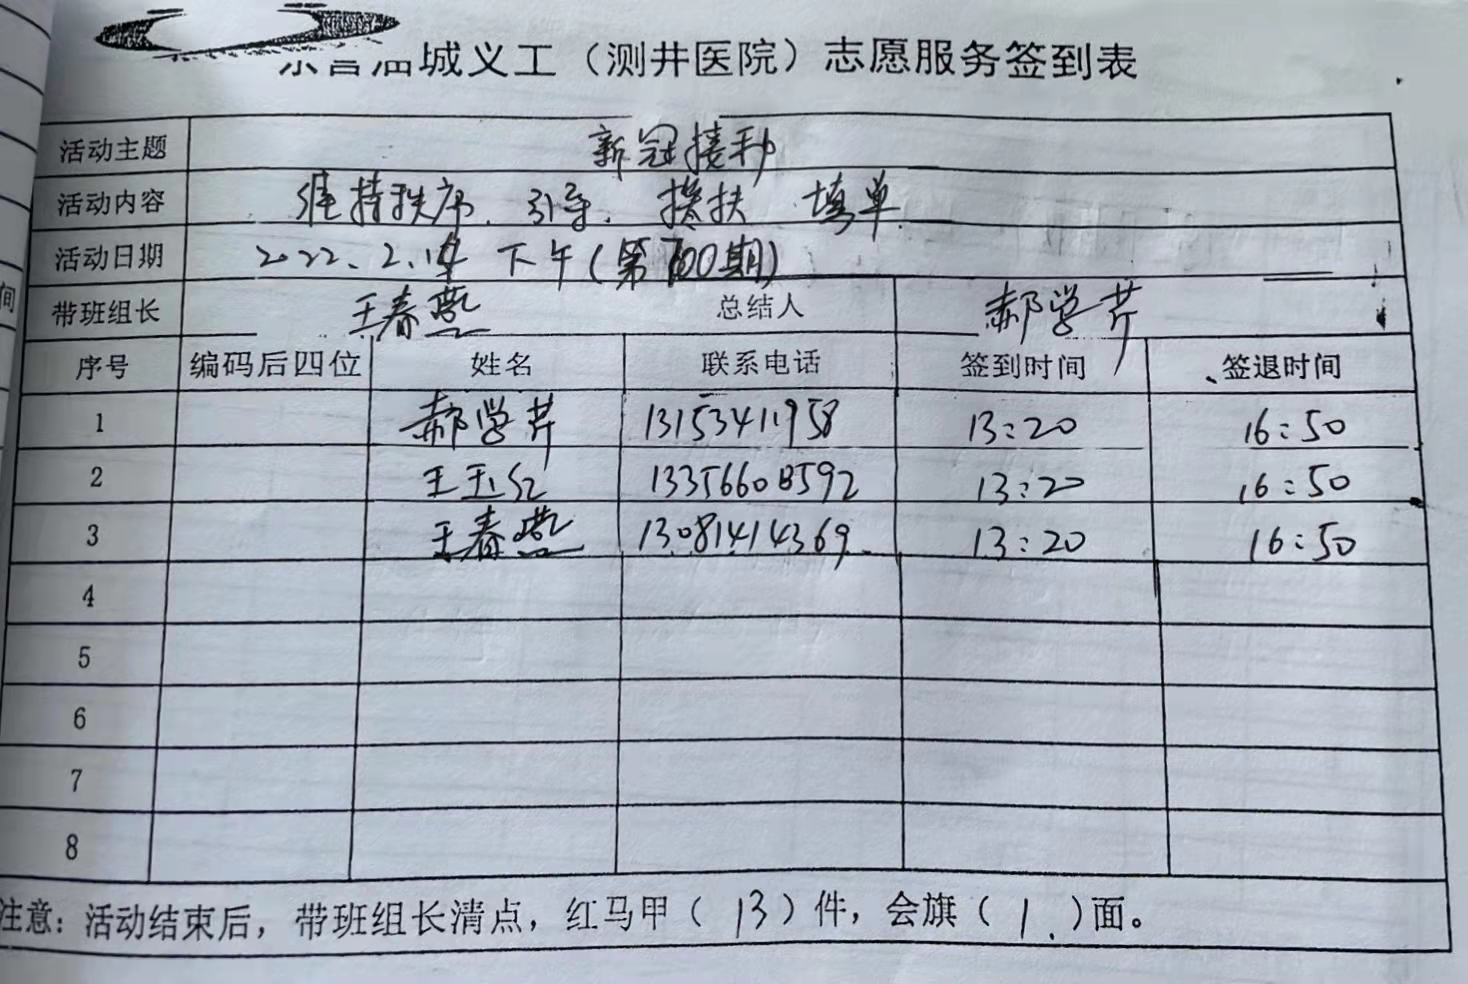 东营油城义工（测井医院）志愿服务签到表
活动主题 新冠接种
活动内容 维持秩序、引导、搀扶 填单
活动日期 2022.2.14 下午(第700期)
带班组长 王春燕 总结人 郝学芹
序号 编码后四位 姓名 联系电话 签到时间 签退时间
1 郝学芹 13153411958 13:20 16:50
2 王玉红 13356608592 13:20 16:50
3 王春燕 13081414369 13:20 16:50
4
5
6
7
8
注意：活动结束后，带班组长清点，红马甲（13）件，会旗（1.）面。
间